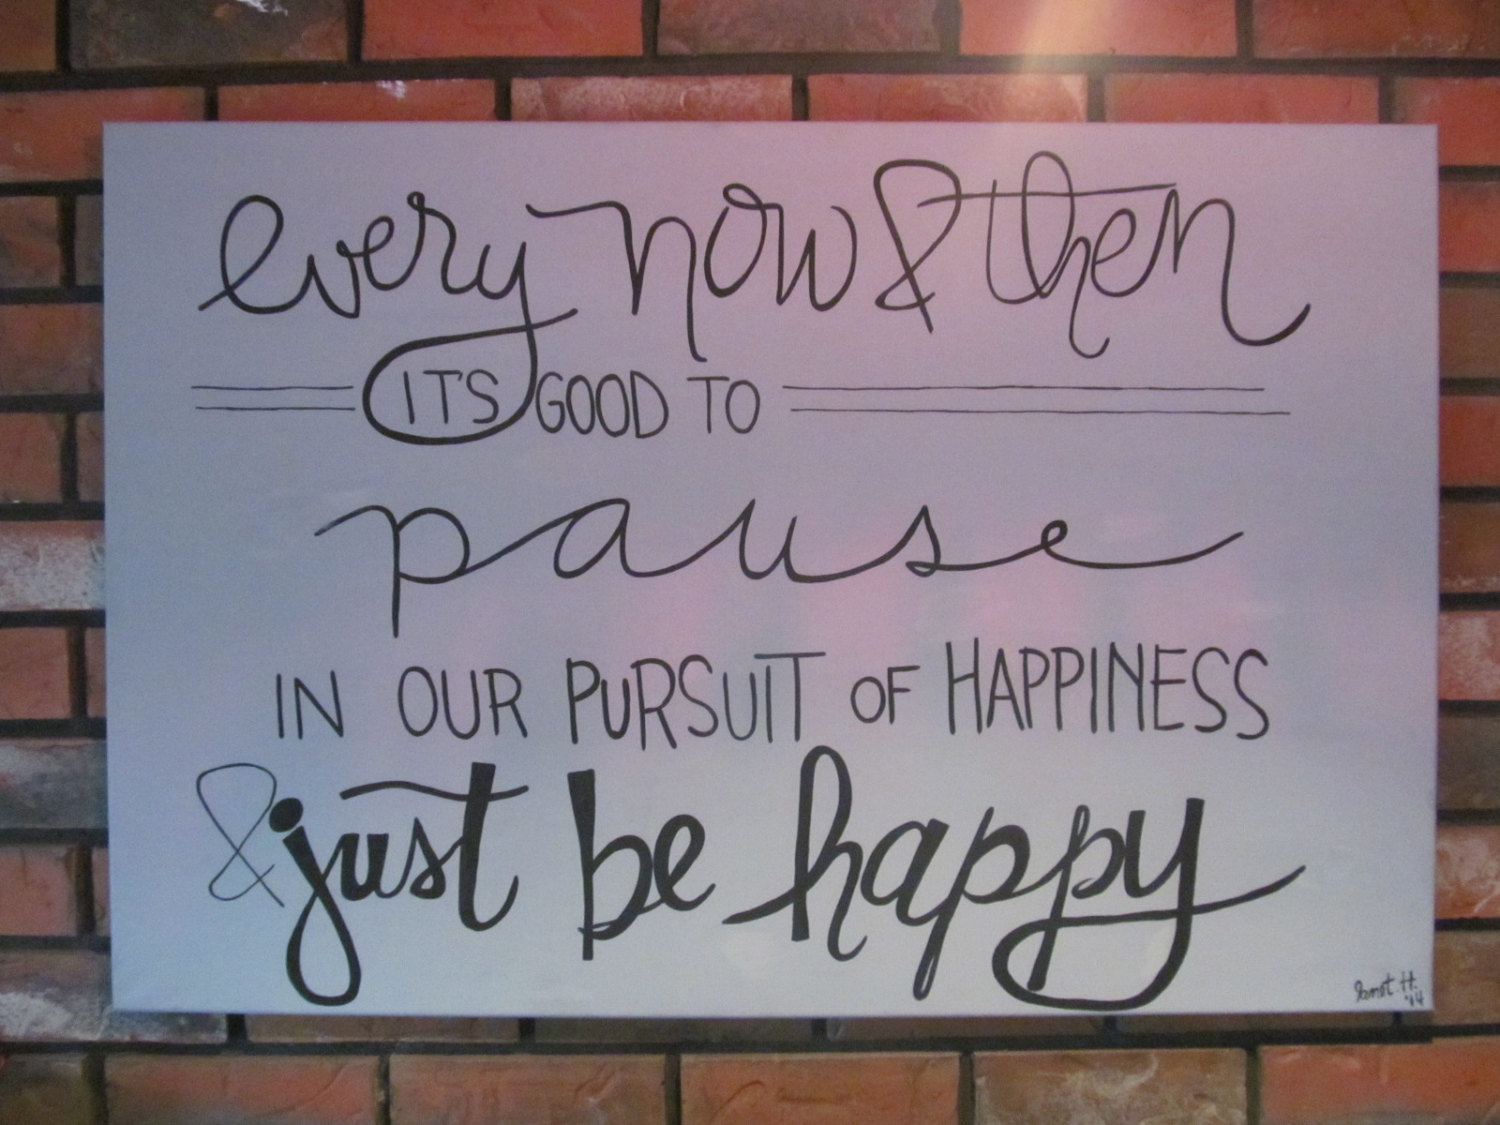 every now & then
IT'S GOOD TO
pause
IN OUR PURSUIT OF HAPPINESS
& just be happy
H.
'14